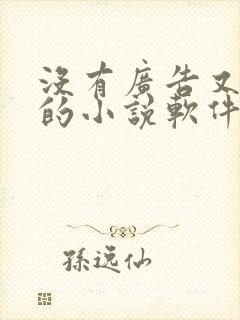 沒有廣告又
的小說軟件
孫逸仙